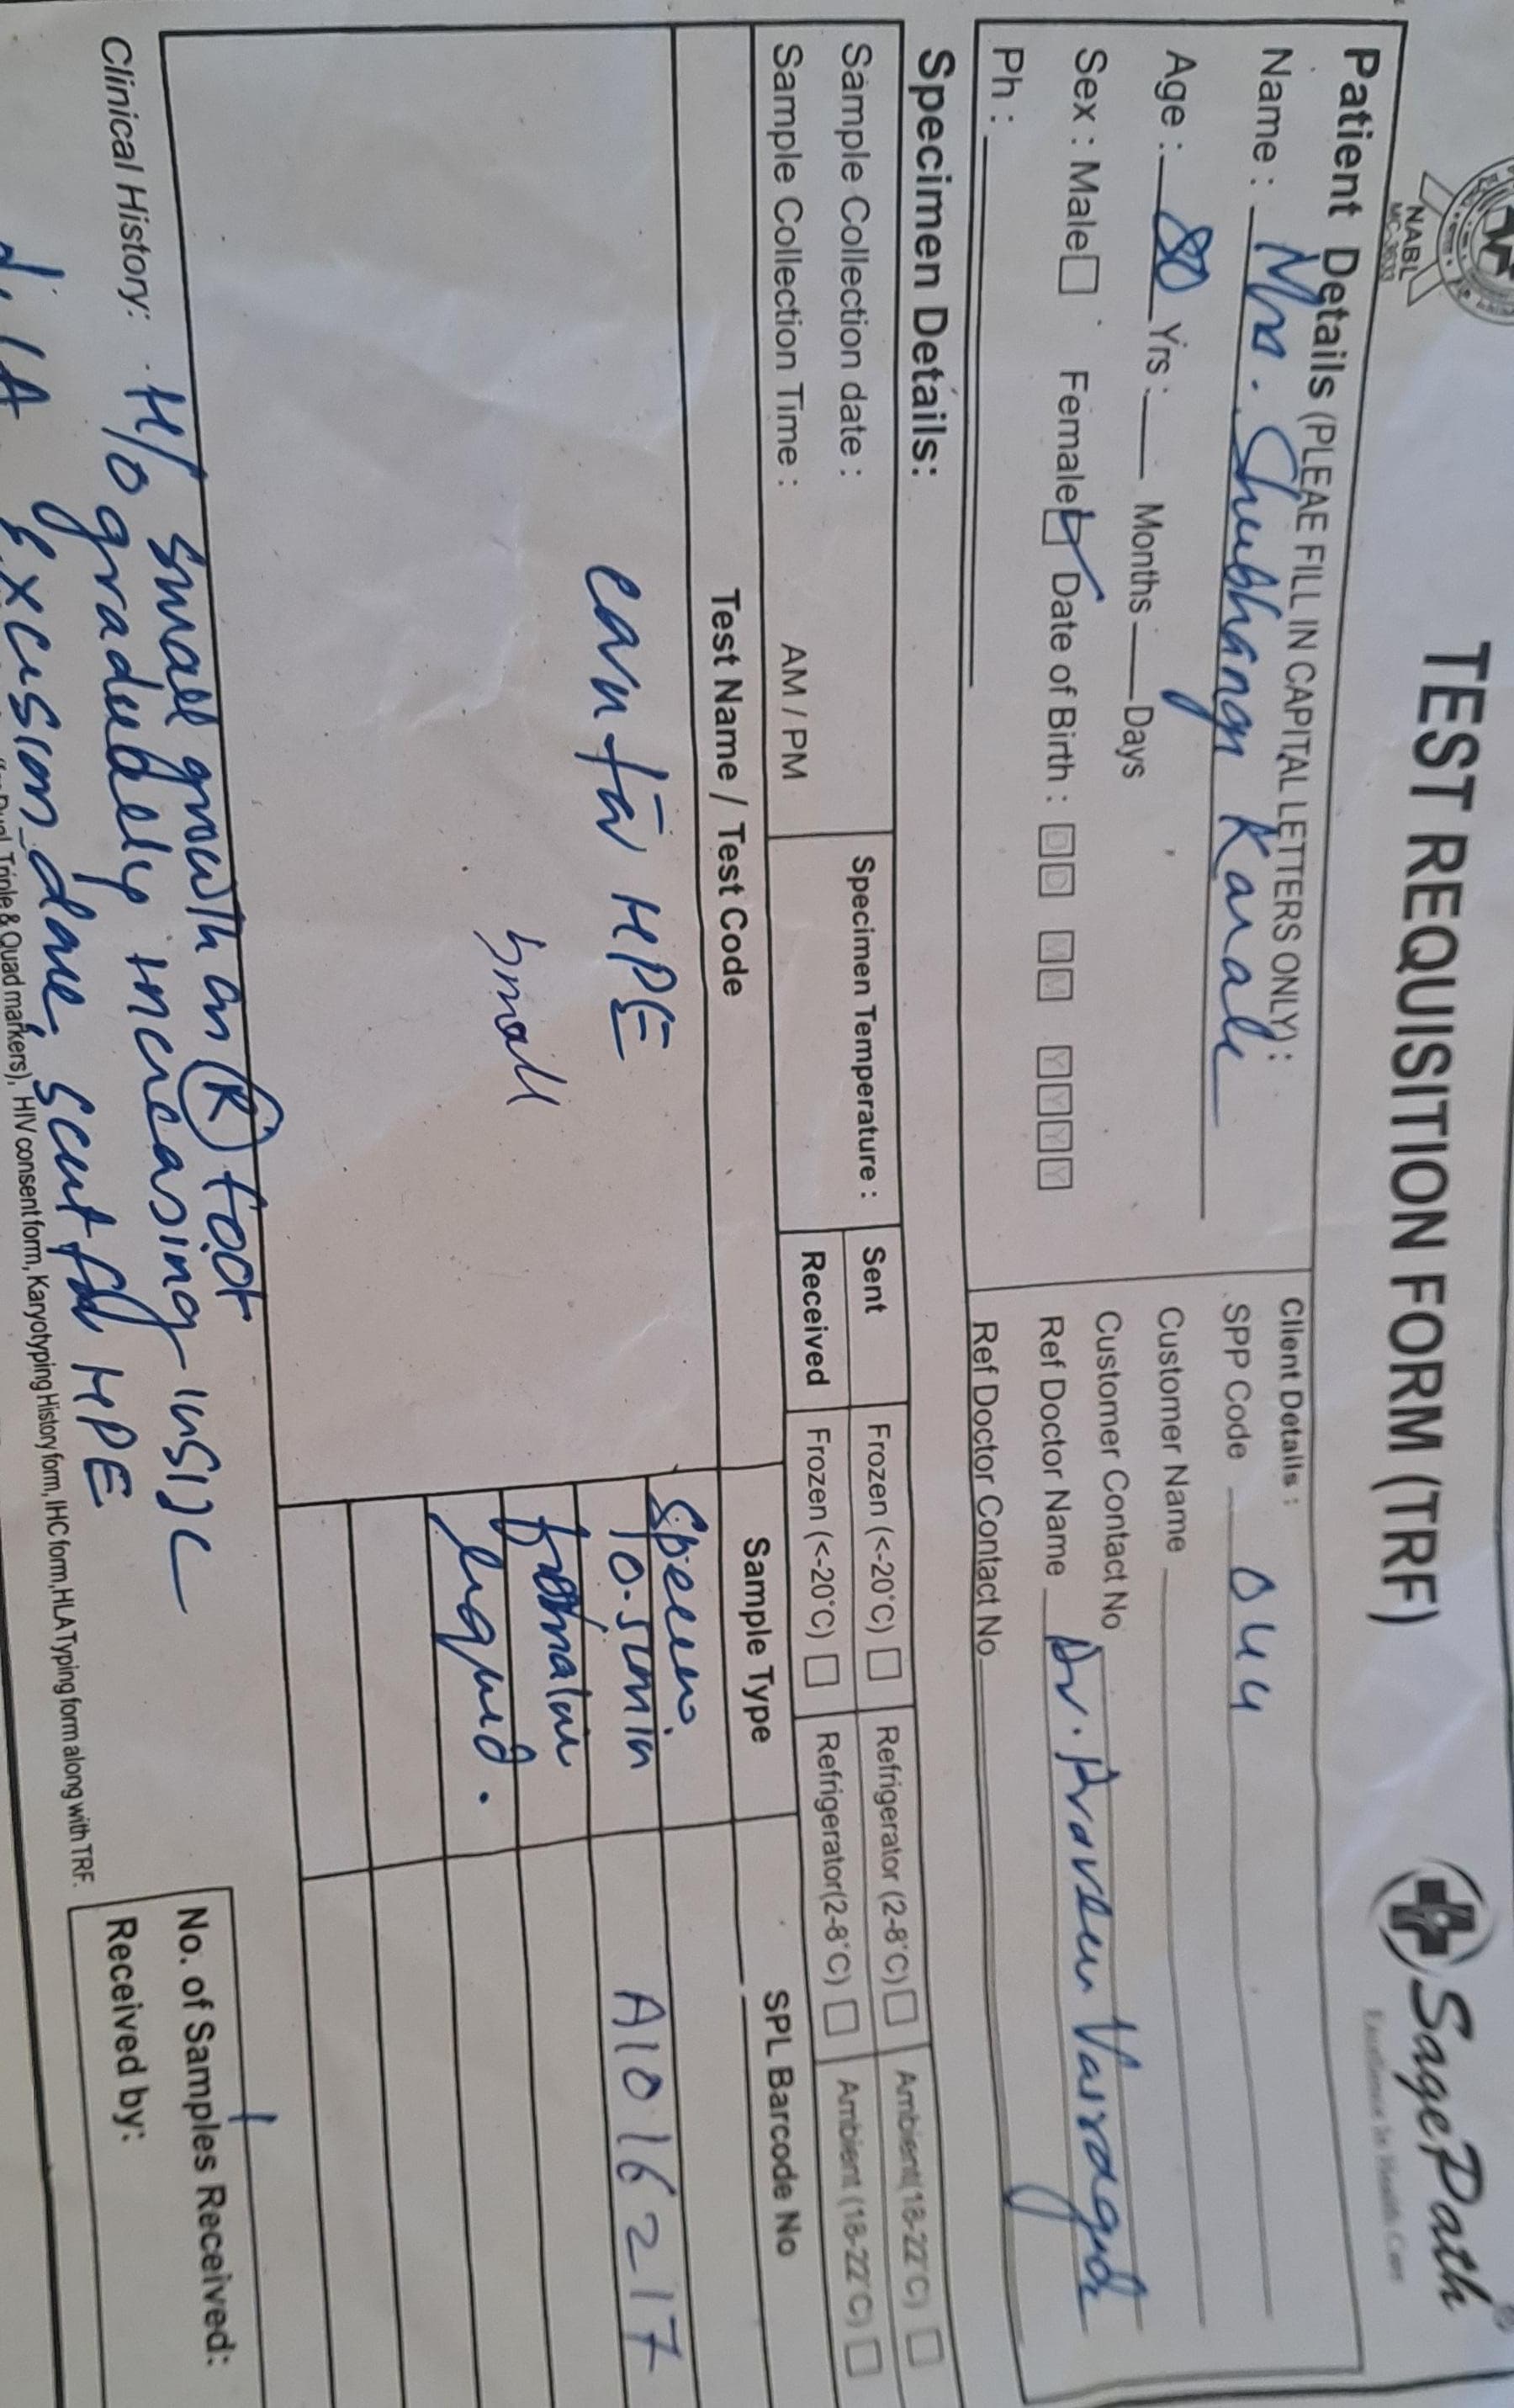 TEST REQUISITION FORM (TRF)
SagePath
Excellence In Health Care
NABL
Patient Details (PLEAE FILL IN CAPITAL LETTERS ONLY) :
Name : Mrs. Shubhangi Karale
Age : 80 Yrs : Months Days
Sex : Male Female Date of Birth : D D M M Y Y Y Y
Ph :
Client Details :
SPP Code 044
Customer Name
Customer Contact No
Ref Doctor Name Dr. Praveen
Ref Doctor Contact No
Specimen Details:
Sample Collection date :
Sample Collection Time : AM / PM
Specimen Temperature :
Sent Frozen (<-20°C) Refrigerator (2-8°C) Ambient(18-22°C)
Received Frozen (<-20°C) Refrigerator(2-8°C) Ambient (18-22°C)
Test Name / Test Code Sample Type SPL Barcode No
HPE
small
A1016217
liquid.
Clinical History: H/o small growth on R foot
gradually increasing in size
Excision done, sent for HPE
Triple & Quad markers), HIV consent form, Karyotyping History form, IHC form, HLA Typing form along with TRF.
No. of Samples Received: 1
Received by: